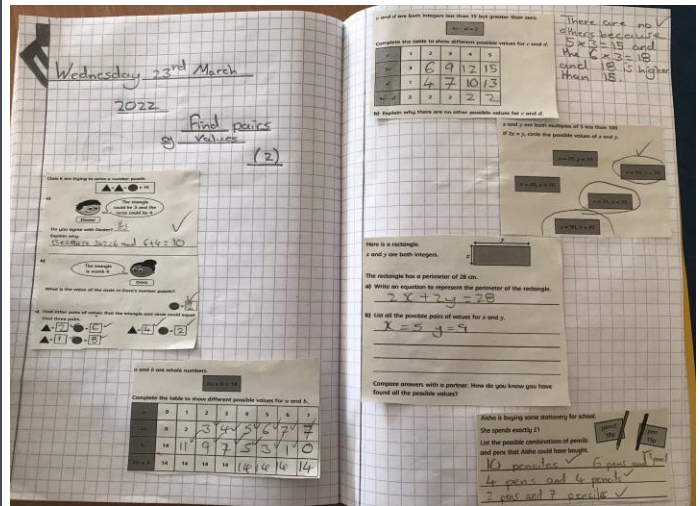 Wednesday 23rd March
2022
Find pairs
of values
(2)
Class 6 are trying to solve a number puzzle.
a)
The triangle
could be 3 and the
circle could be 4.
Do you agree with Dexter?
Explain why.
Because 3x2=6 and 6+4=10
b)
The triangle
is worth 4
Dora
What is the value of the circle in Dora's number puzzle?
c) Find other pairs of values that the triangle and circle could equal.
Find three pairs.
2 6 4 2
1 8
a and b are whole numbers.
2a + b = 14
Complete the table to show different possible values for a and b.
a 0 1 2 3 4 5 6 7
14 11 9 7 5 3 1 0
14 14 14 14 14 14 14 14
c and d are both integers less than 15 but greater than zero.
Complete the table to show different possible values for c and d.
c 1 2 3 4 5
3 6 9 12 15
d 1 4 7 10 13
2 2 2 2 2
b) Explain why there are no other possible values for c and d.
There are no
others because
5 x 3 = 15 and
the 6 x 3 = 18
and 18 is higher
than 15.
x and y are both multiples of 5 less than 100
If 2x = y, circle the possible values of x and y.
Here is a rectangle.
x and y are both integers.
The rectangle has a perimeter of 28 cm.
a) Write an equation to represent the perimeter of the rectangle.
2x + 2y = 28
b) List all the possible pairs of values for x and y.
x = 5 y = 9
Compare answers with a partner. How do you know you have
found all the possible values?
Aisha is buying some stationery for school.
She spends exactly £1
List the possible combinations of pencils
and pens that Aisha could have bought.
pencil
10p
pen
15p
10 penciles 6 pens and 1 pencil
4 pens and 4 pencils
2 pens and 7 penciles